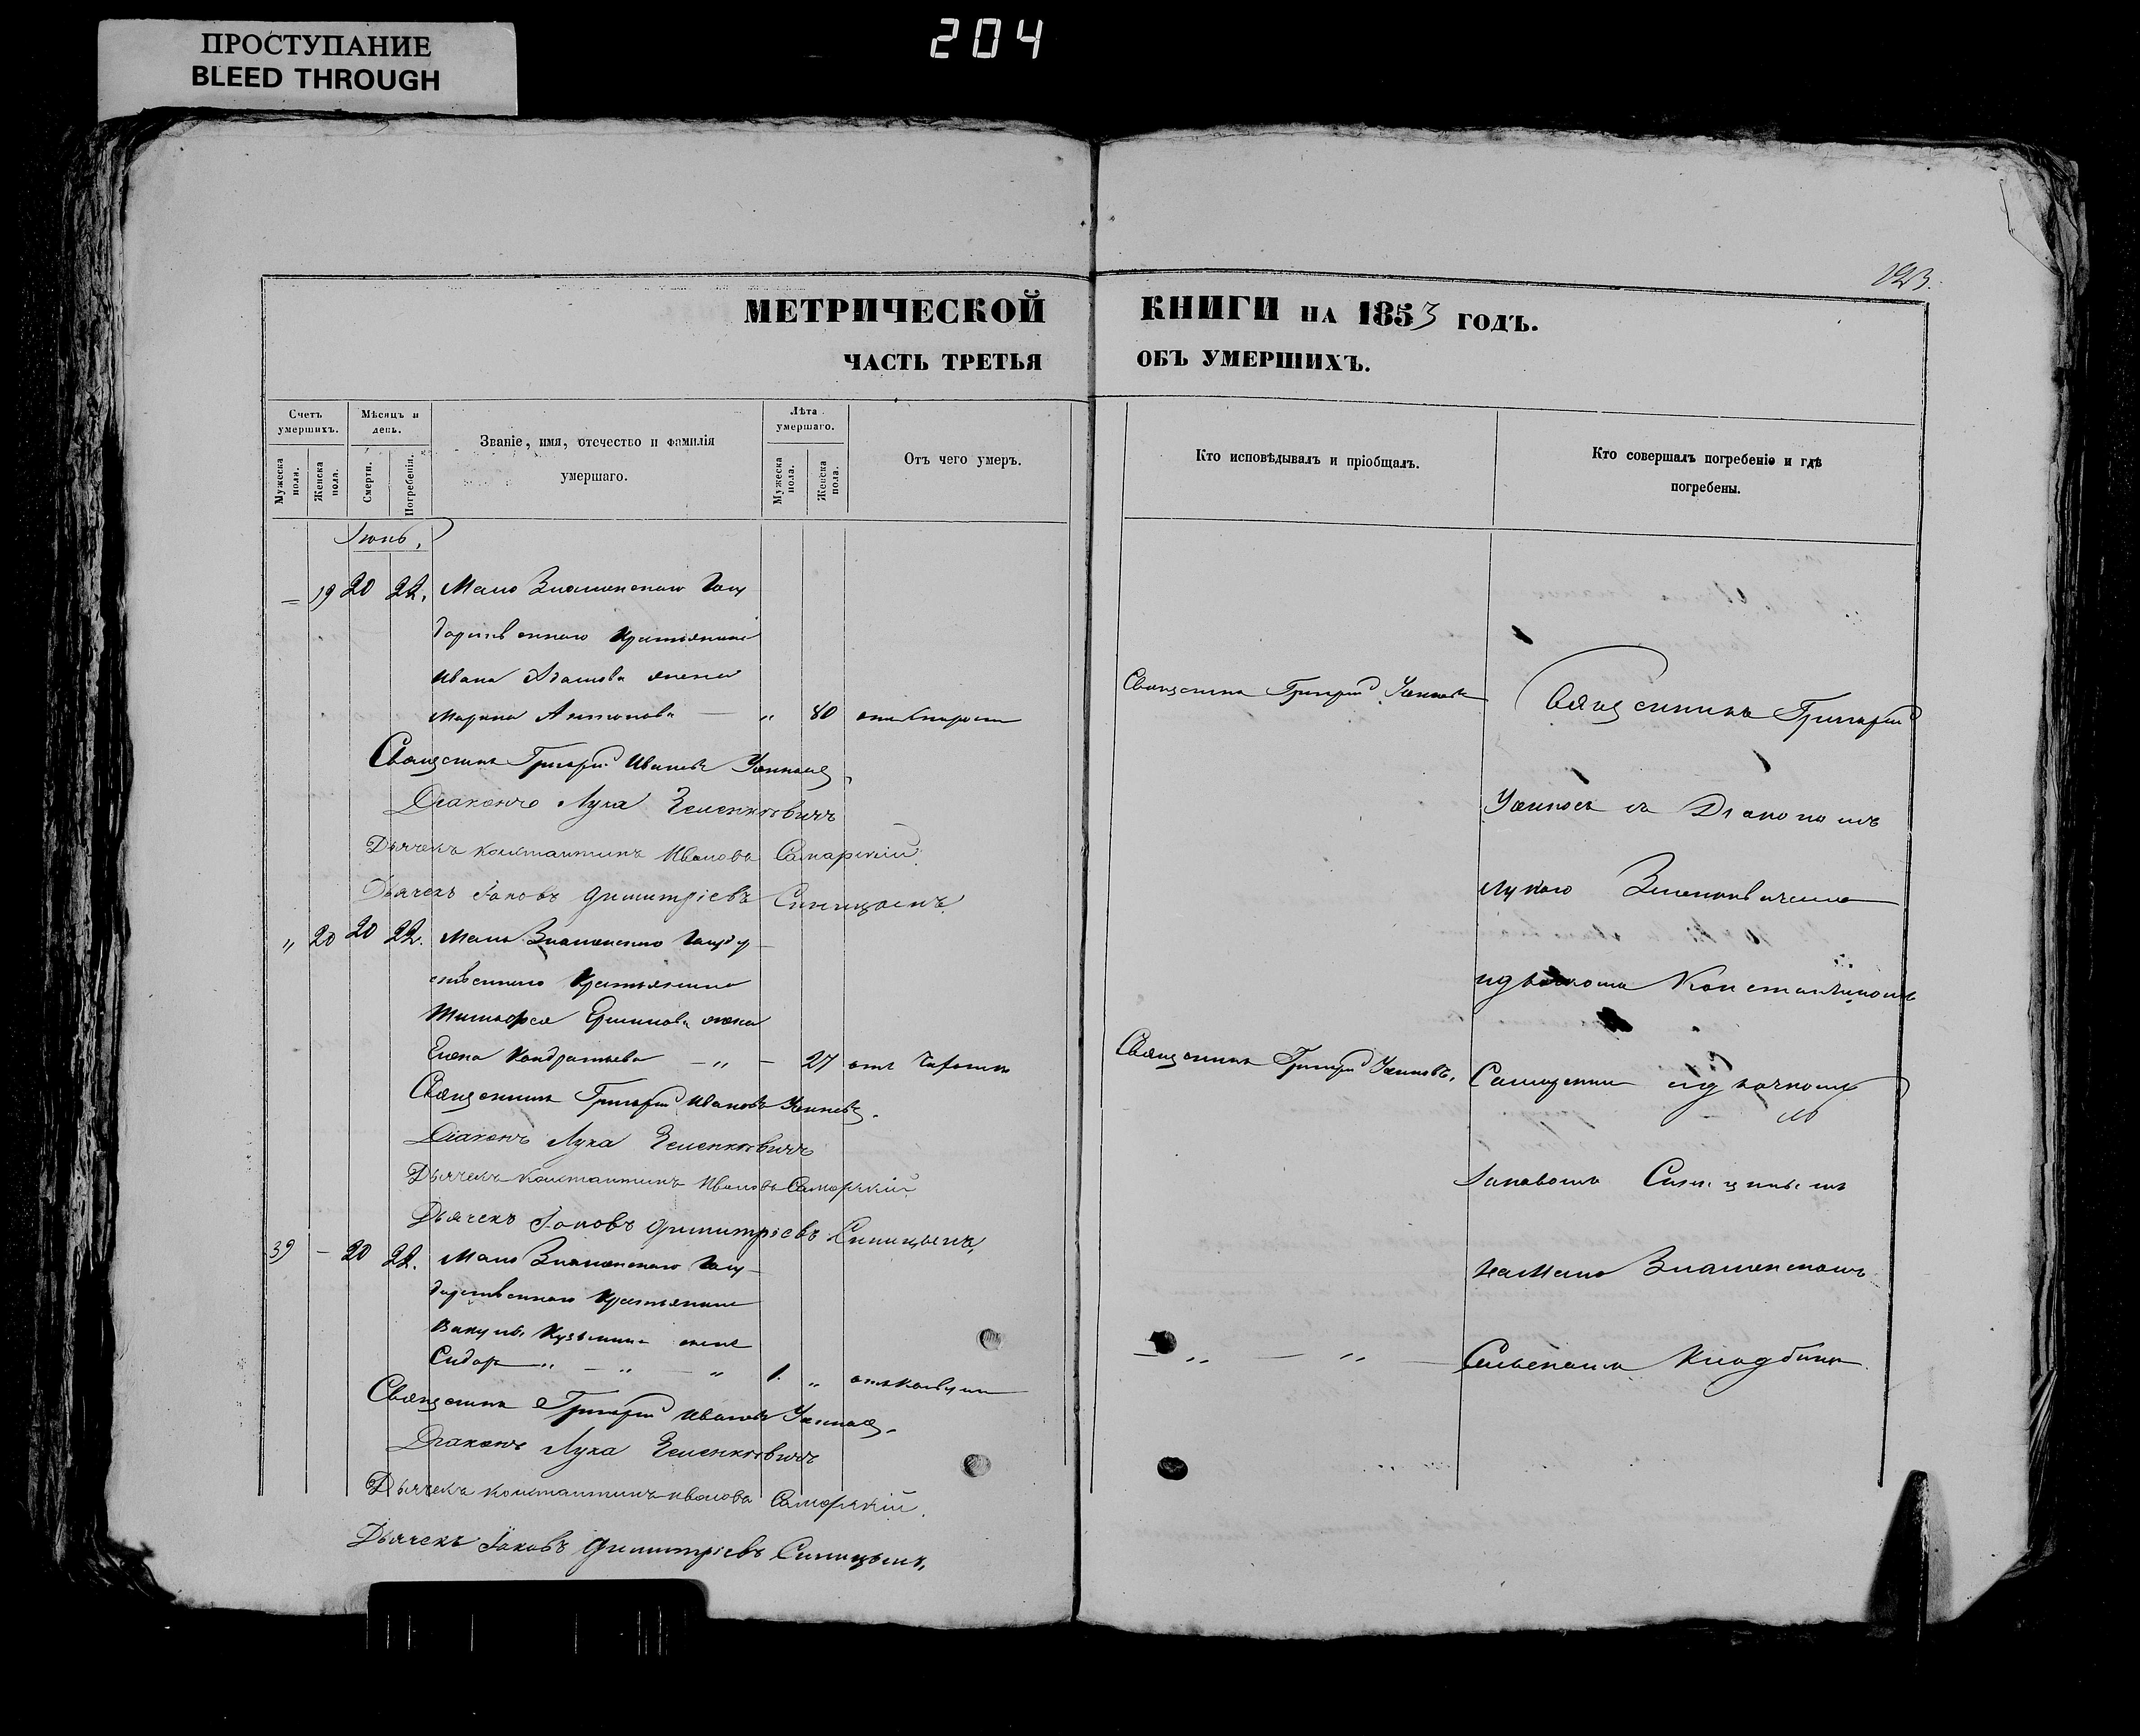 ПРОСТУПАНИЕ
BLEED THROUGH
204
123.
МЕТРИЧЕСКОЙ КНИГИ НА 1853 ГОДЪ.
ЧАСТЬ ТРЕТЬЯ ОБЪ УМЕРШИХЪ.
Счетъ умершихъ.
Мужеска пола.
Женска пола.
Мѣсяцъ и день.
Смерти.
Погребенія.
Званіе, имя, отечество и фамилія
умершаго.
Лѣта умершаго.
Мужеска пола.
Женска пола.
Отъ чего умеръ.
Кто исповѣдывалъ и пріобщалъ.
Кто совершалъ погребеніе и гдѣ
погребены.
Іюнь,
— 19 20 22. Мало Знаменскаго Госу
дарственнаго Крестьянина
Ивана Адамова жена
Марина Антонова — " 80 отъ старости
Священникъ Григорій Иванов
Діаконъ Лука Зеленкевичъ
Дьячекъ Константинъ Ивановъ Самарскій.
Дьячекъ Іаковъ Димитріевъ Синицынъ.
" 20 20 22. Мало Знаменскаго Государ
ственнаго Крестьянина
жена
Елена Кондратьева — " — 27 отъ
Священникъ Григорій Ивановъ
Діаконъ Лука Зеленкевичъ
Дьячекъ Константинъ Ивановъ Самарскій
Дьячекъ Іаковъ Димитріевъ Синицынъ.
39 — 20 22. Мало Знаменскаго Госу
дарственнаго Крестьянина
Вакулы Кузьмина сынъ
Сидоръ " — " — " 1. "
Священникъ Григорій Ивановъ
Діаконъ Лука Зеленкевичъ
Дьячекъ Константинъ Ивановъ Самарскій.
Дьячекъ Іаковъ Димитріевъ Синицынъ.
Священникъ Григорій
Священникъ Григорій
— " — " —
Священникъ Григорій
съ Діакономъ
Лукою Зеленкевичемъ
Константиномъ
Самарскимъ
Іаковомъ Синицынымъ
на Мало Знаменскомъ
Сельскомъ Кладбищѣ.